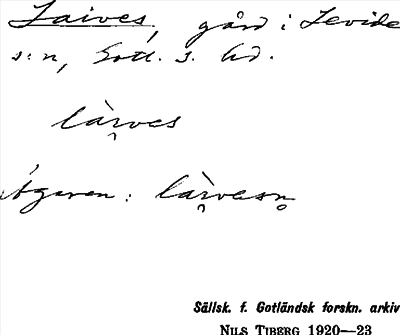 Laives, gård i Levide
s:n, Gotl. s. hd.
làrves
Ägaren: làrvesn
Sällsk. f. Gotländsk forskn. arkiv
NILS TIBERG 1920—23